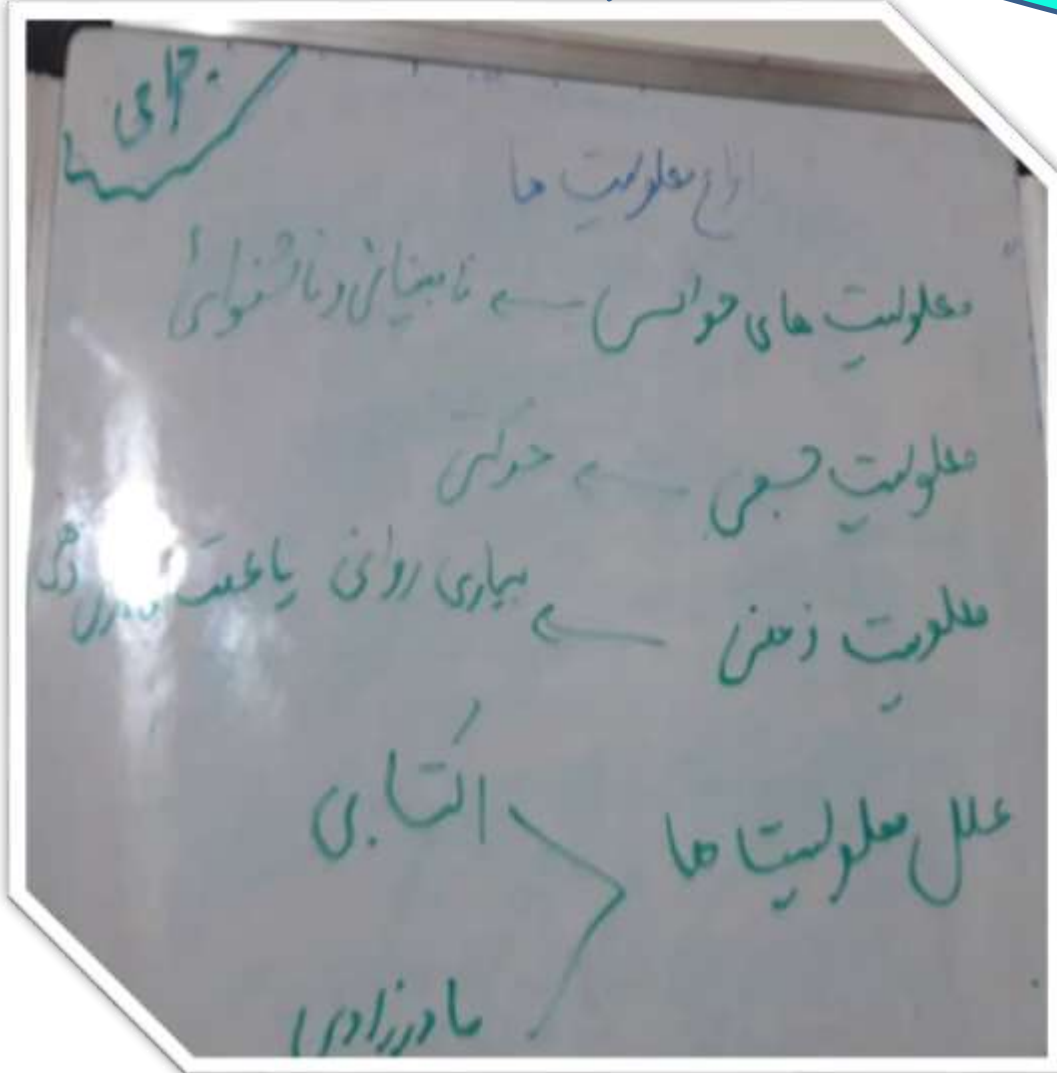 انواع معلولیت ها
معلولیت های حواسی ← نابینائی و ناشنوائی
معلولیت جسمی ← حرکتی
معلولیت ذهنی ← بیماری روانی یا عقب
علل معلولیتا ها
اکتابی
مادرزادی